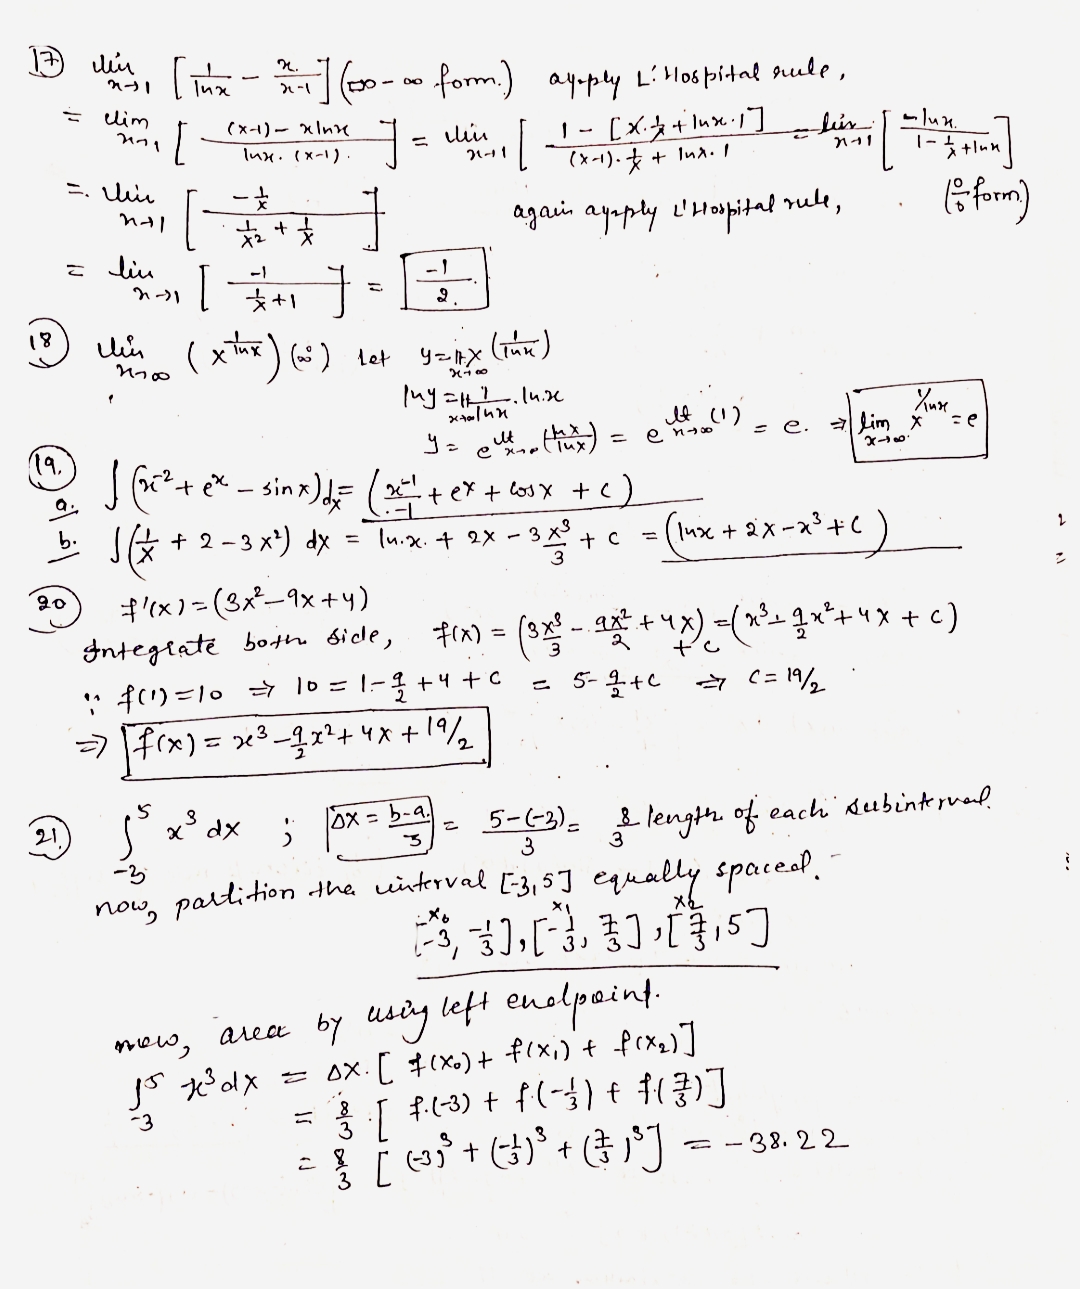 17 lim x→1 [1/lnx - x/x-1] (∞-∞ form.) apply L' Hospital rule,
= lim x→1 [(x-1) - xlnx / lnx.(x-1).] = lim x→1 [1 - [x.1/x + lnx.1] / (x-1).1/x + lnx.1] = lim x→1 [-lnx. / 1-1/x+lnx]
=. lim x→1 [-1/x / 1/x2 + 1/x] again apply L'Hospital rule, (0/0 form)
= lim x→1 [-1 / 1/x+1] = -1/2.
18 lim x→∞ (x^1/lnx) (∞^0) let y=lt x→∞ x^(1/lnx)
lny = lt x→∞ 1/lnx . ln.x
y = e^lt x→∞ (lnx/lnx) = e^lt x→∞ (1) = e. ⇒ lim x→∞ x^1/lnx = e
19.
a. ∫(x^-2 + e^x - sinx)dx = (x^-1/-1 + e^x + cosx + c)
b. ∫(1/x + 2 - 3x²) dx = ln.x. + 2x - 3x³/3 + c = (lnx + 2x - x³ + c)
20 f'(x) = (3x² - 9x + 4)
Integrate both side, f(x) = (3x³/3 - 9x²/2 + 4x) + c = (x³ - 9/2x² + 4x + c)
∵ f(1) = 10 ⇒ 10 = 1 - 9/2 + 4 + c = 5 - 9/2 + c ⇒ c = 19/2
⇒ f(x) = x³ - 9/2x² + 4x + 19/2
21. ∫-3^5 x³ dx ; Δx = b-a/3 = 5-(-3)/3 = 8/3 length of each subinterval.
now, partition the interval [-3,5] equally spaced.
x0 x1 x2
[-3, -1/3], [-1/3, 7/3], [7/3, 5]
now, area by using left endpoint.
∫-3^5 x³dx = Δx.[f(x0) + f(x1) + f(x2)]
= 8/3 .[f.(-3) + f.(-1/3) + f.(7/3)]
= 8/3 [(-3)³ + (-1/3)³ + (7/3)³] = -38.22